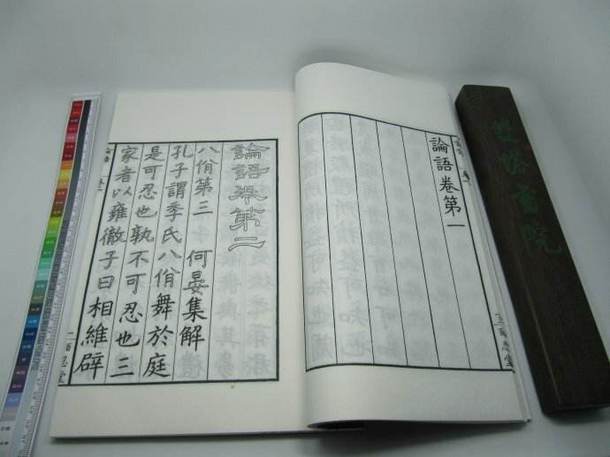 論語卷第一
論語卷第二
八佾第三 何晏集解
孔子謂季氏八佾舞於庭
是可忍也孰不可忍也三
家者以雍徹子曰相維辟